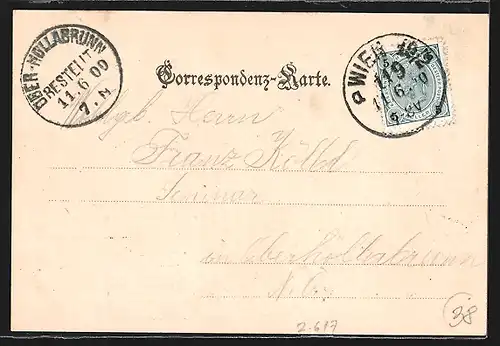 OBER-HOLLABRUNN
BESTELLT
11.6.00
7.N
Correspondenz-Karte.
WIEN
11.6.
Herrn
Franz Kölbl
Seminar
in Oberhollabrunn
N.Ö.
38
2-617